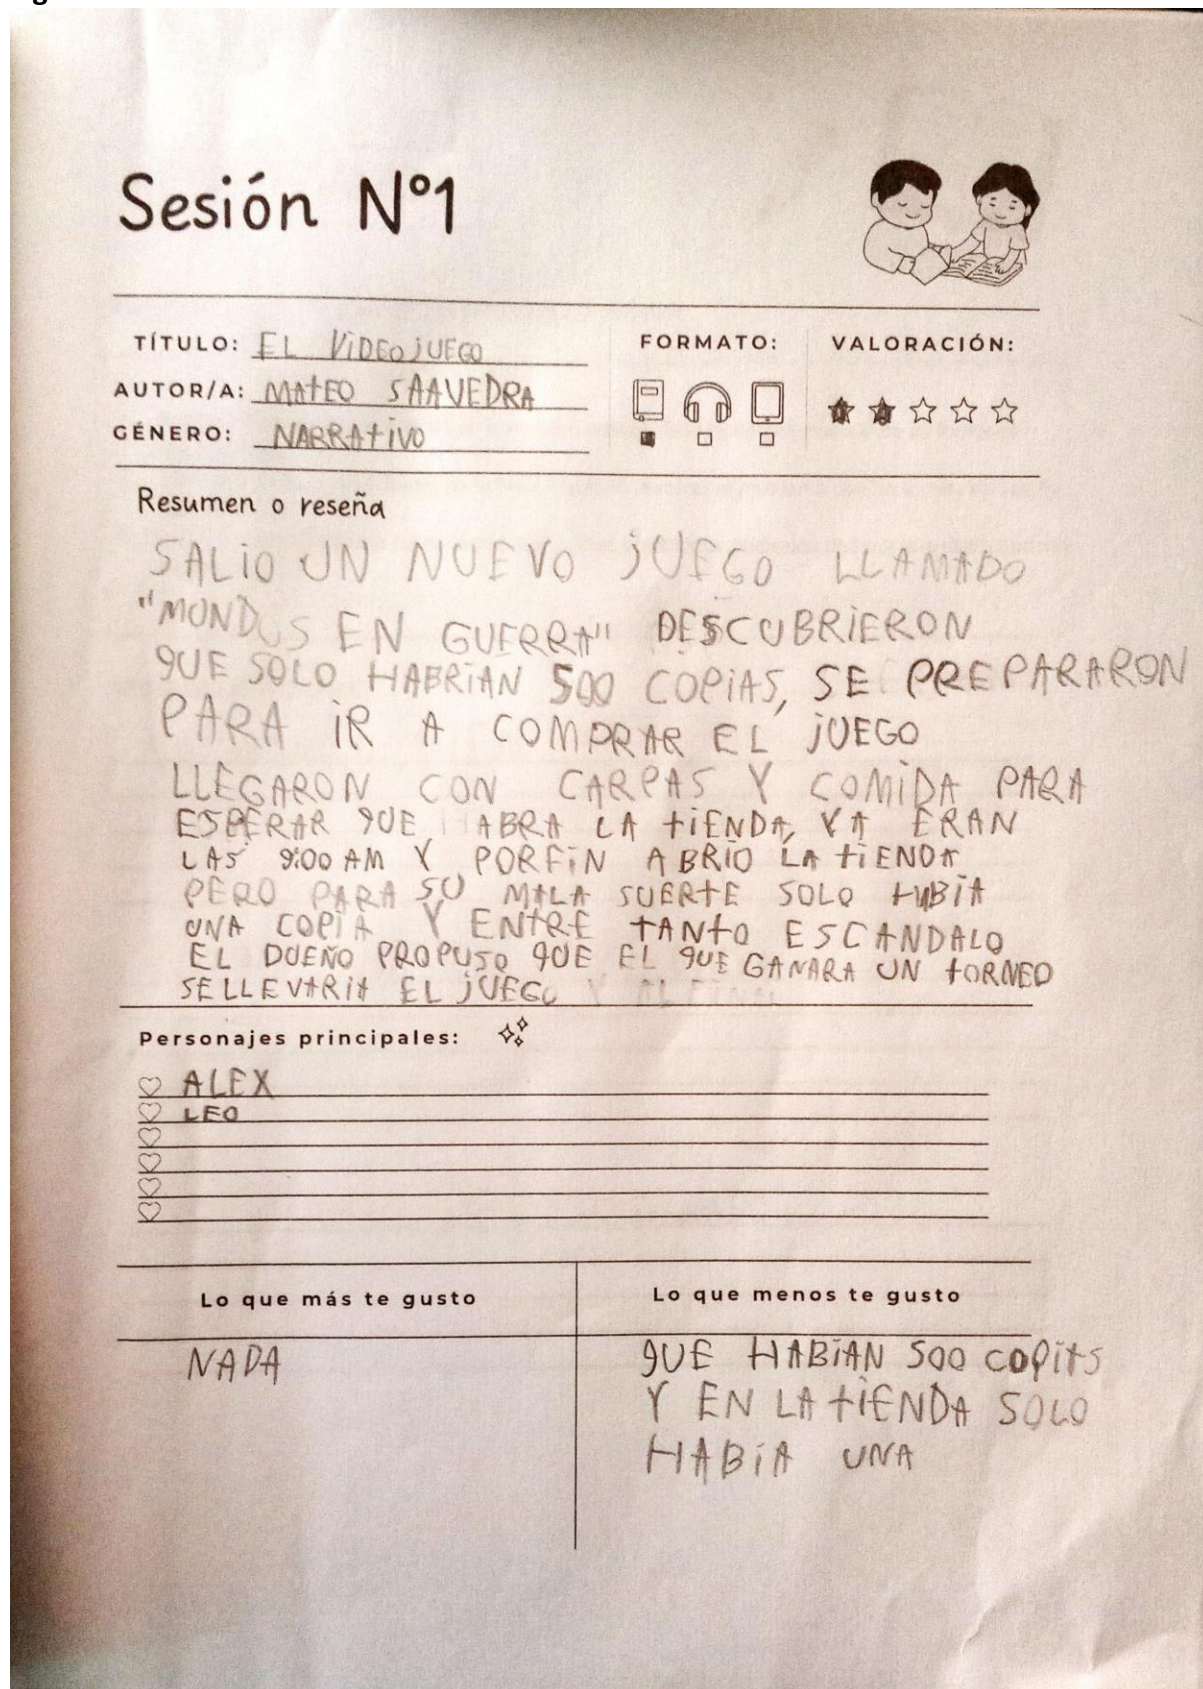 Sesión N°1
TÍTULO: EL ViDEOjUEGO
AUTOR/A: MATEO SAAVEDRA
GÉNERO: NARRATIVO
FORMATO:
VALORACIÓN:
Resumen o reseña
SALiO UN NUEVO jUEGO LLAMADO
"MUNDOS EN GUERRA" DESCUBRiERON
QUE SOLO HABRíAN 500 COPiAS, SE PREPARARON
PARA iR A COMPRAR EL jUEGO
LLEGARON CON CARPAS Y COMiDA PARA
ESPERAR QUE ABRA LA tiENDA, YA ERAN
LAS 9:00 AM Y PORFiN ABRiO LA tiENDA
PERO PARA SU MALA SUERtE SOLO HUBiA
UNA COPiA Y ENtRE tANtO ESCANDALO
EL DUEÑO PROPUSO QUE EL QUE GANARA UN tORNEO
SELLEVARiA EL jUEGO
Personajes principales:
ALEX
LEO
Lo que más te gusto
NADA
Lo que menos te gusto
QUE HABiAN 500 COPiAS
Y EN LA tiENDA SOLO
HABíA UNA